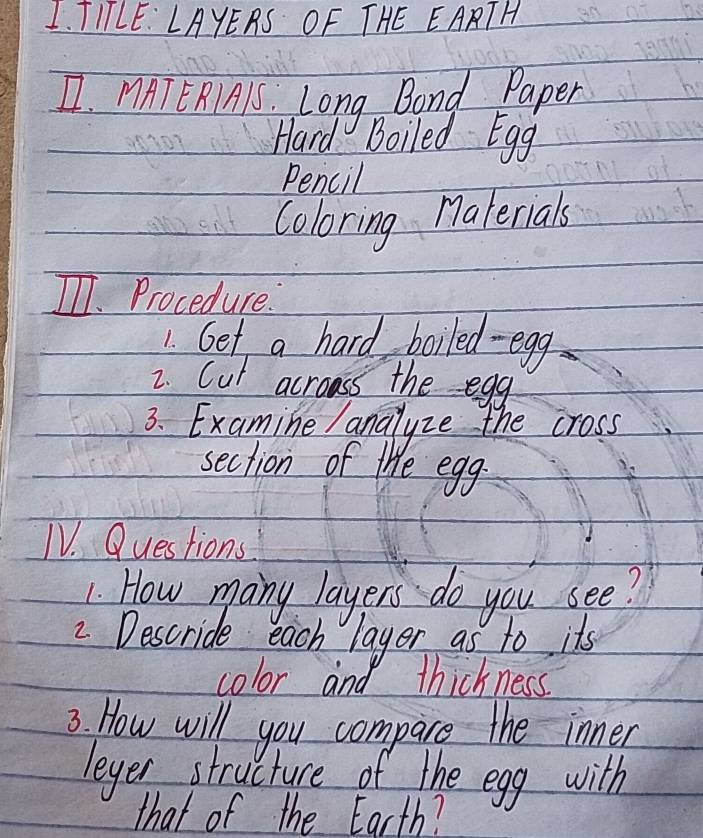 I. TITLE: LAYERS OF THE EARTH
II. MATERIAlS: Long Bond Paper
Hard Boiled Egg
Pencil
Coloring Materials
III. Procedure:
1. Get a hard boiled-egg
2. Cut across the egg
3. Examine/analyze the cross
section of the egg.
IV. Questions
1. How many layers do you see?
2. Descride each layer as to its
color and thickness.
3. How will you compare the inner
leyer structure of the egg with
that of the Earth?